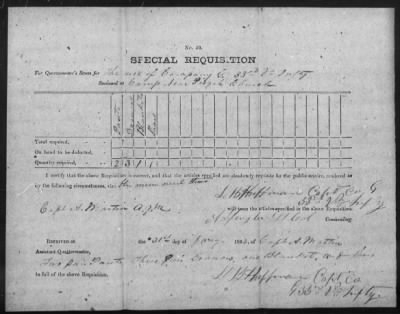 No. 40.
SPECIAL REQUISITION
For Quartermaster's Stores for The use of Company G, 33rd Va Infty
Stationed at Camp near Church
Pants
Total required,
On hand to be deducted,
Quantity required, 2 3 1 1
I certify that the above Requisition is correct, and that the articles specified are absolutely requisite for the public service, rendered so
by the following circumstances, that the men need them
Huffman Capt Co G
33d Va Infty
Capt A. Martin A.Q.M.
will issue the articles specified in the above Requisition.
Lt Col Commanding.
Received at the 31st day of 186 of Capt A. Martin
Assistant Quartermaster, Two pair Pants Three Pair Drawers, one Blanket,
in full of the above Requisition.
Huffman Capt Co
G 33d Va Infty.